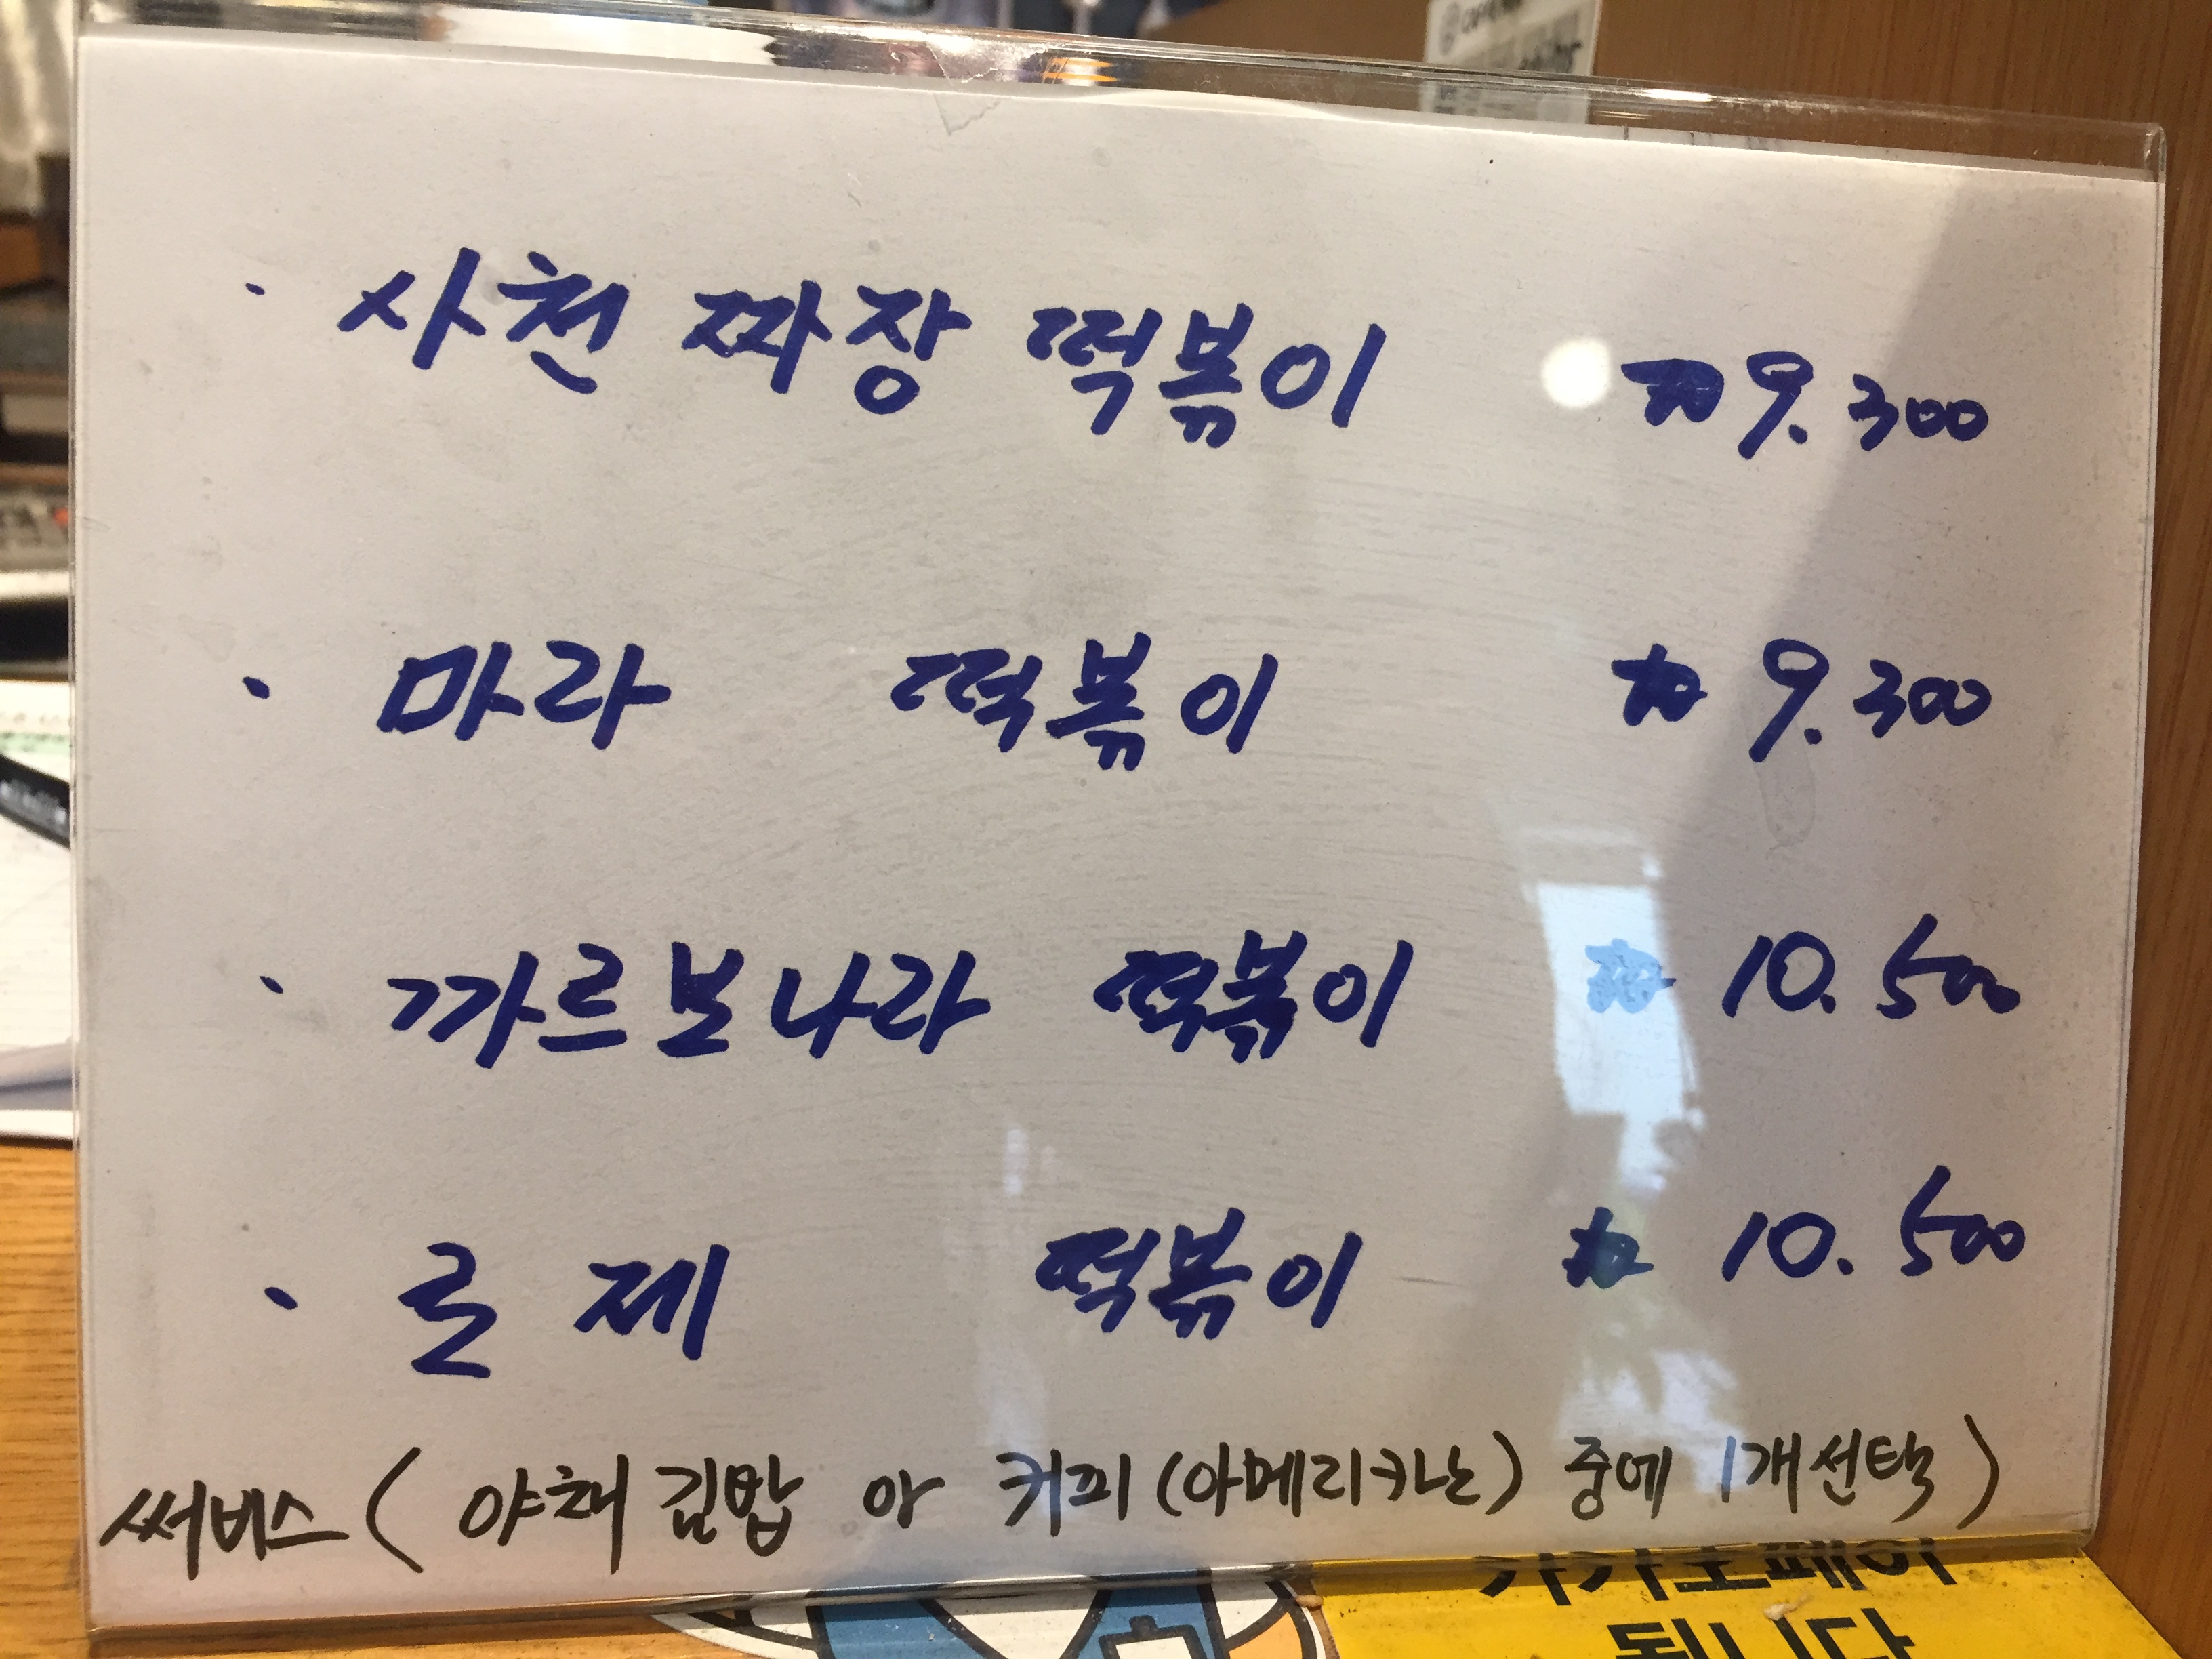 · 사천 짜장 떡볶이 ₩9.300
· 마라 떡볶이 ₩ 9.300
· 까르보나라 떡볶이 ₩ 10.500
· 로제 떡볶이 ₩ 10.500
써비스 ( 야채 김밥 아 커피 (아메리카노) 중에 1개 선택 )
카카오페이
됩니다